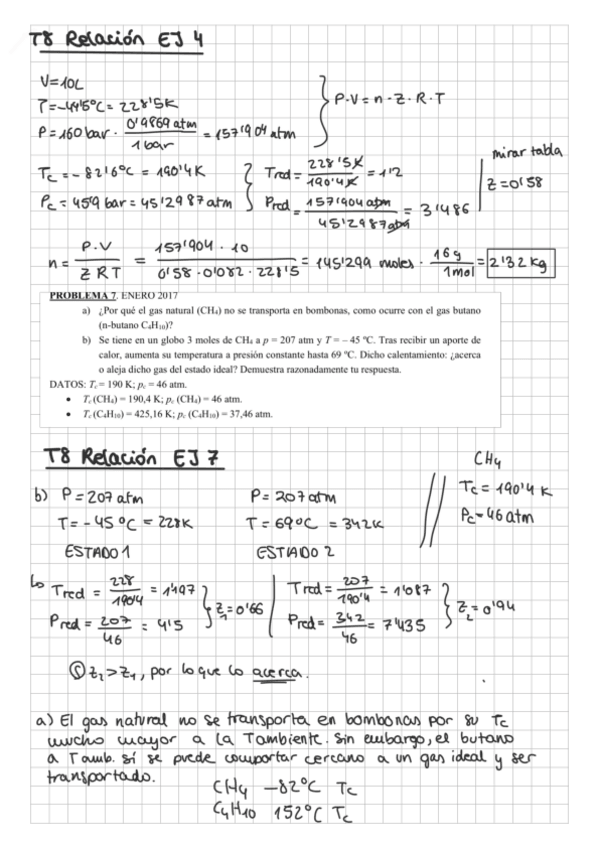 T8 Relación EJ 4
V=10L
T=-44'5ºC = 228'5K
P=160 bar · 0'9869 atm / 1 bar = 157'904 atm
P·V = n·Z·R·T
Tc = -82'6ºC = 190'4 K
Pc = 45'9 bar = 45'2987 atm
Tred = 228'5K / 190'4K = 1'2
Pred = 157'904 atm / 45'2987 atm = 3'486
mirar tabla
Z=0'58
n = P·V / Z R T = 157'904 · 10 / 0'58·0'082·228'5 = 145'299 moles · 16g / 1mol = 2'32 Kg
PROBLEMA 7. ENERO 2017
a) ¿Por qué el gas natural (CH4) no se transporta en bombonas, como ocurre con el gas butano
(n-butano C4H10)?
b) Se tiene en un globo 3 moles de CH4 a p = 207 atm y T = – 45 ºC. Tras recibir un aporte de
calor, aumenta su temperatura a presión constante hasta 69 ºC. Dicho calentamiento: ¿acerca
o aleja dicho gas del estado ideal? Demuestra razonadamente tu respuesta.
DATOS: Tc = 190 K; pc = 46 atm.
• Tc (CH4) = 190,4 K; pc (CH4) = 46 atm.
• Tc (C4H10) = 425,16 K; pc (C4H10) = 37,46 atm.
T8 Relación EJ 7
CH4
Tc = 190'4 K
Pc = 46 atm
b) P = 207 atm
T = -45ºC = 228K
ESTADO 1
P = 207 atm
T = 69ºC = 342K
ESTADO 2
Tred = 228 / 190'4 = 1'197
Pred = 207 / 46 = 4'5
Z1=0'66
Tred = 207 / 190'4 = 1'087
Pred = 342 / 46 = 7'435
Z2 = 0'94
Z2 > Z1, por lo que lo acerca.
a) El gas natural no se transporta en bombonas por su Tc
mucho mayor a la Tambiente. Sin embargo, el butano
a Tamb. sí se puede comportar cercano a un gas ideal y ser
transportado.
CH4 -82ºC Tc
C4H10 152ºC Tc